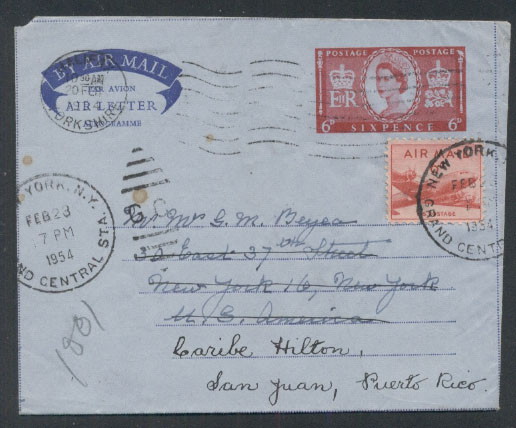 BY AIR MAIL
PAR AVION
AIR LETTER
AM
20 FEB
YORKSHIRE
POSTAGE POSTAGE
E II R
6D SIXPENCE 6D
AIR MAIL
POSTAGE
NEW YORK,
GRAND CENTRAL
FEB 23
1954
YORK, N.Y.
FEB 23
7 PM
1954
GRAND CENTRAL STA.
Mr Mrs G. M. Beyea
32 East 37th Street
New York 16, New York
U. S. America
Caribe Hilton,
San Juan, Puerto Rico.